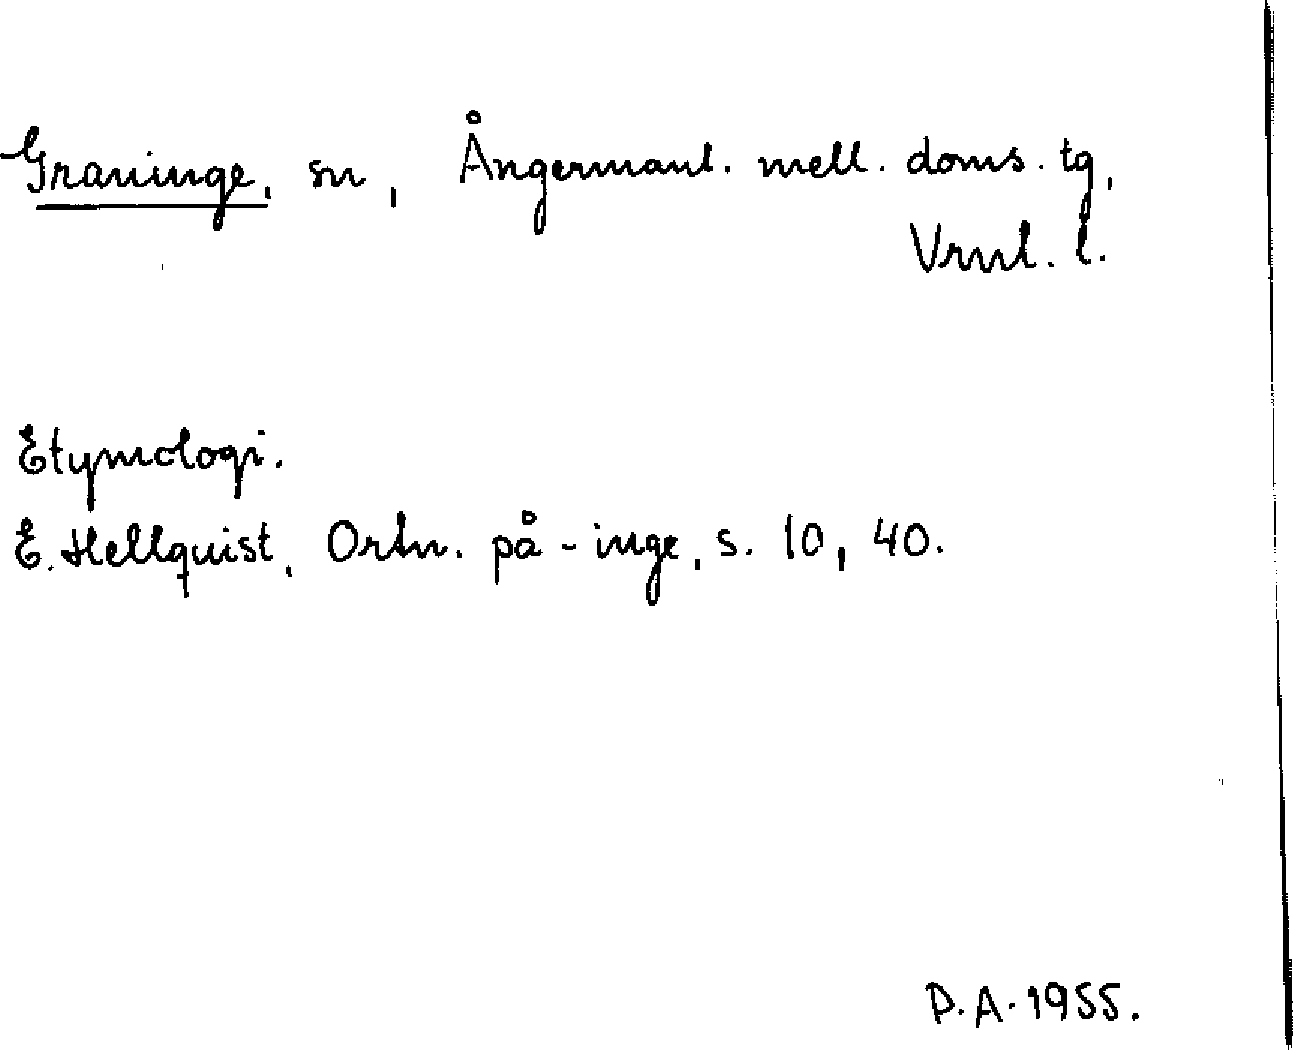 Graninge, sn, Ångermanl. mell. doms. tg,
Vrnl. l.
Etymologi.
E. Hellquist, Ortn. på -inge, s. 10, 40.
P.A. 1955.